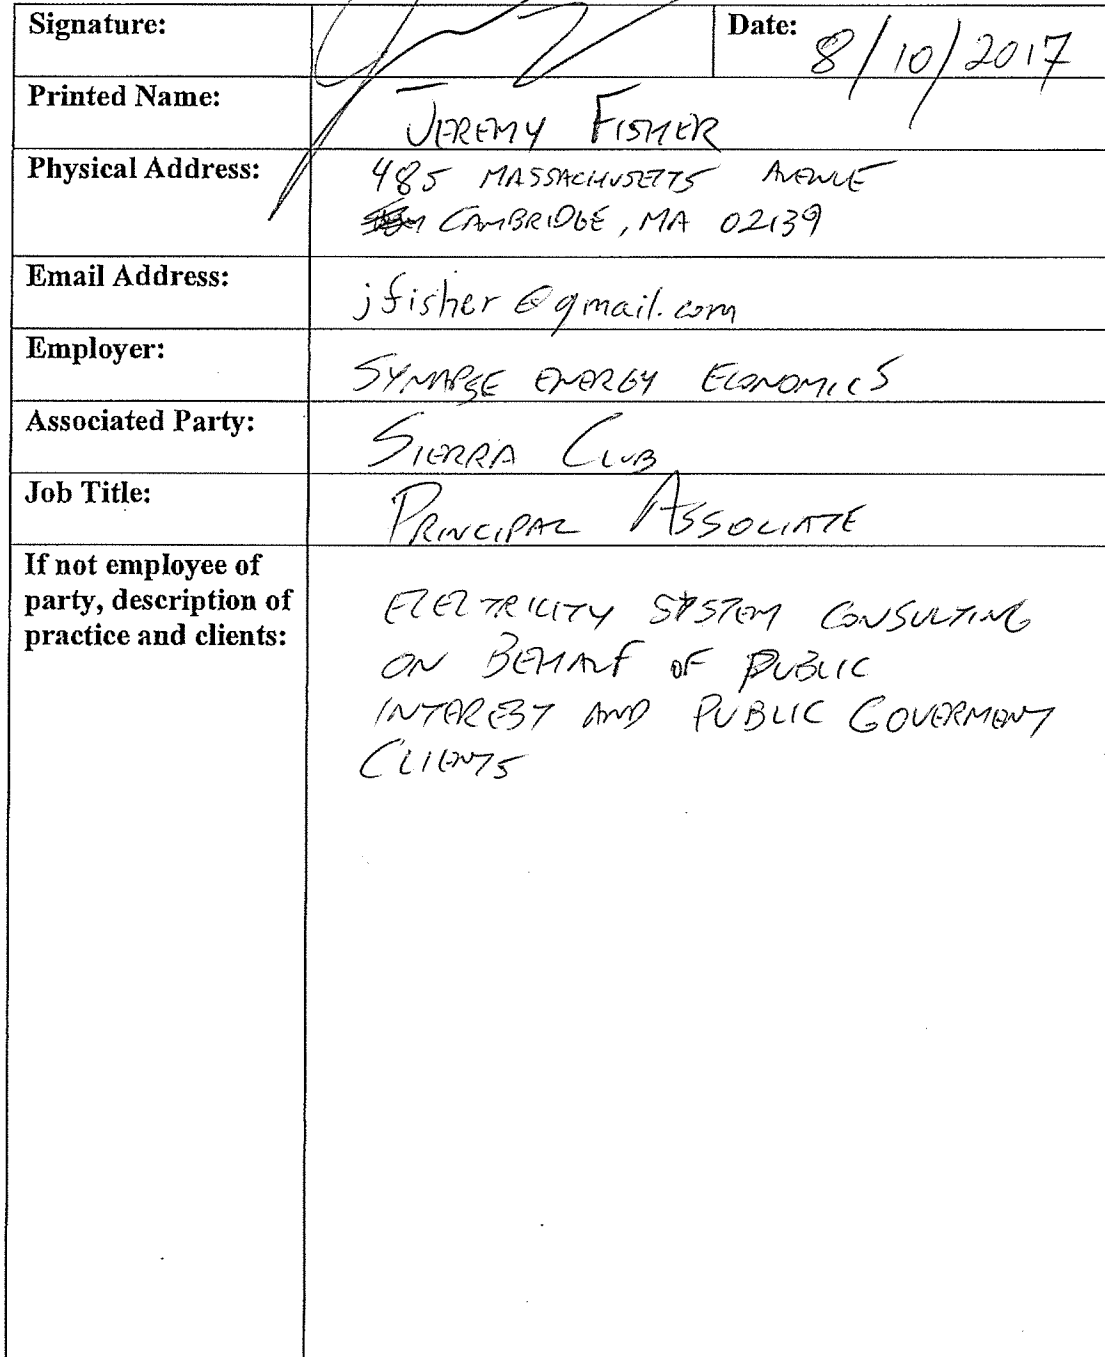 Signature:
Date: 8/10/2017
Printed Name: JEREMY FISHER
Physical Address: 485 MASSACHUSETTS AVENUE
CAMBRIDGE, MA 02139
Email Address: jfisher@gmail.com
Employer: SYNAPSE ENERGY ECONOMICS
Associated Party: SIERRA CLUB
Job Title: PRINCIPAL ASSOCIATE
If not employee of
party, description of
practice and clients:
ELECTRICITY SYSTEM CONSULTING
ON BEHALF OF PUBLIC
INTEREST AND PUBLIC GOVERMENT
CLIENTS